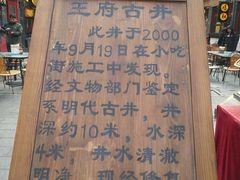 王府古井
此井于2000
年9月19日在小吃
街施工中发现。
经文物部门鉴定
系明代古井，井
深约10米，水深
4米，井水清澈
明净，现经修复